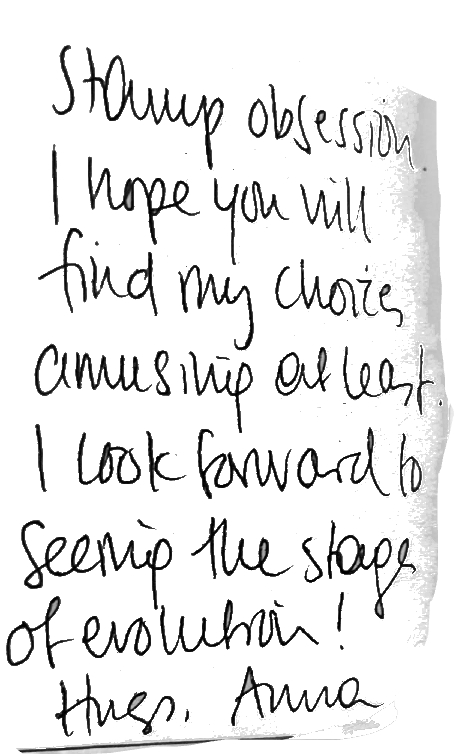 Stamp obsession.
I hope you will
find my choice
amusing at least.
I look forward to
seeing the stage
of evolution!
Hugs, Anna